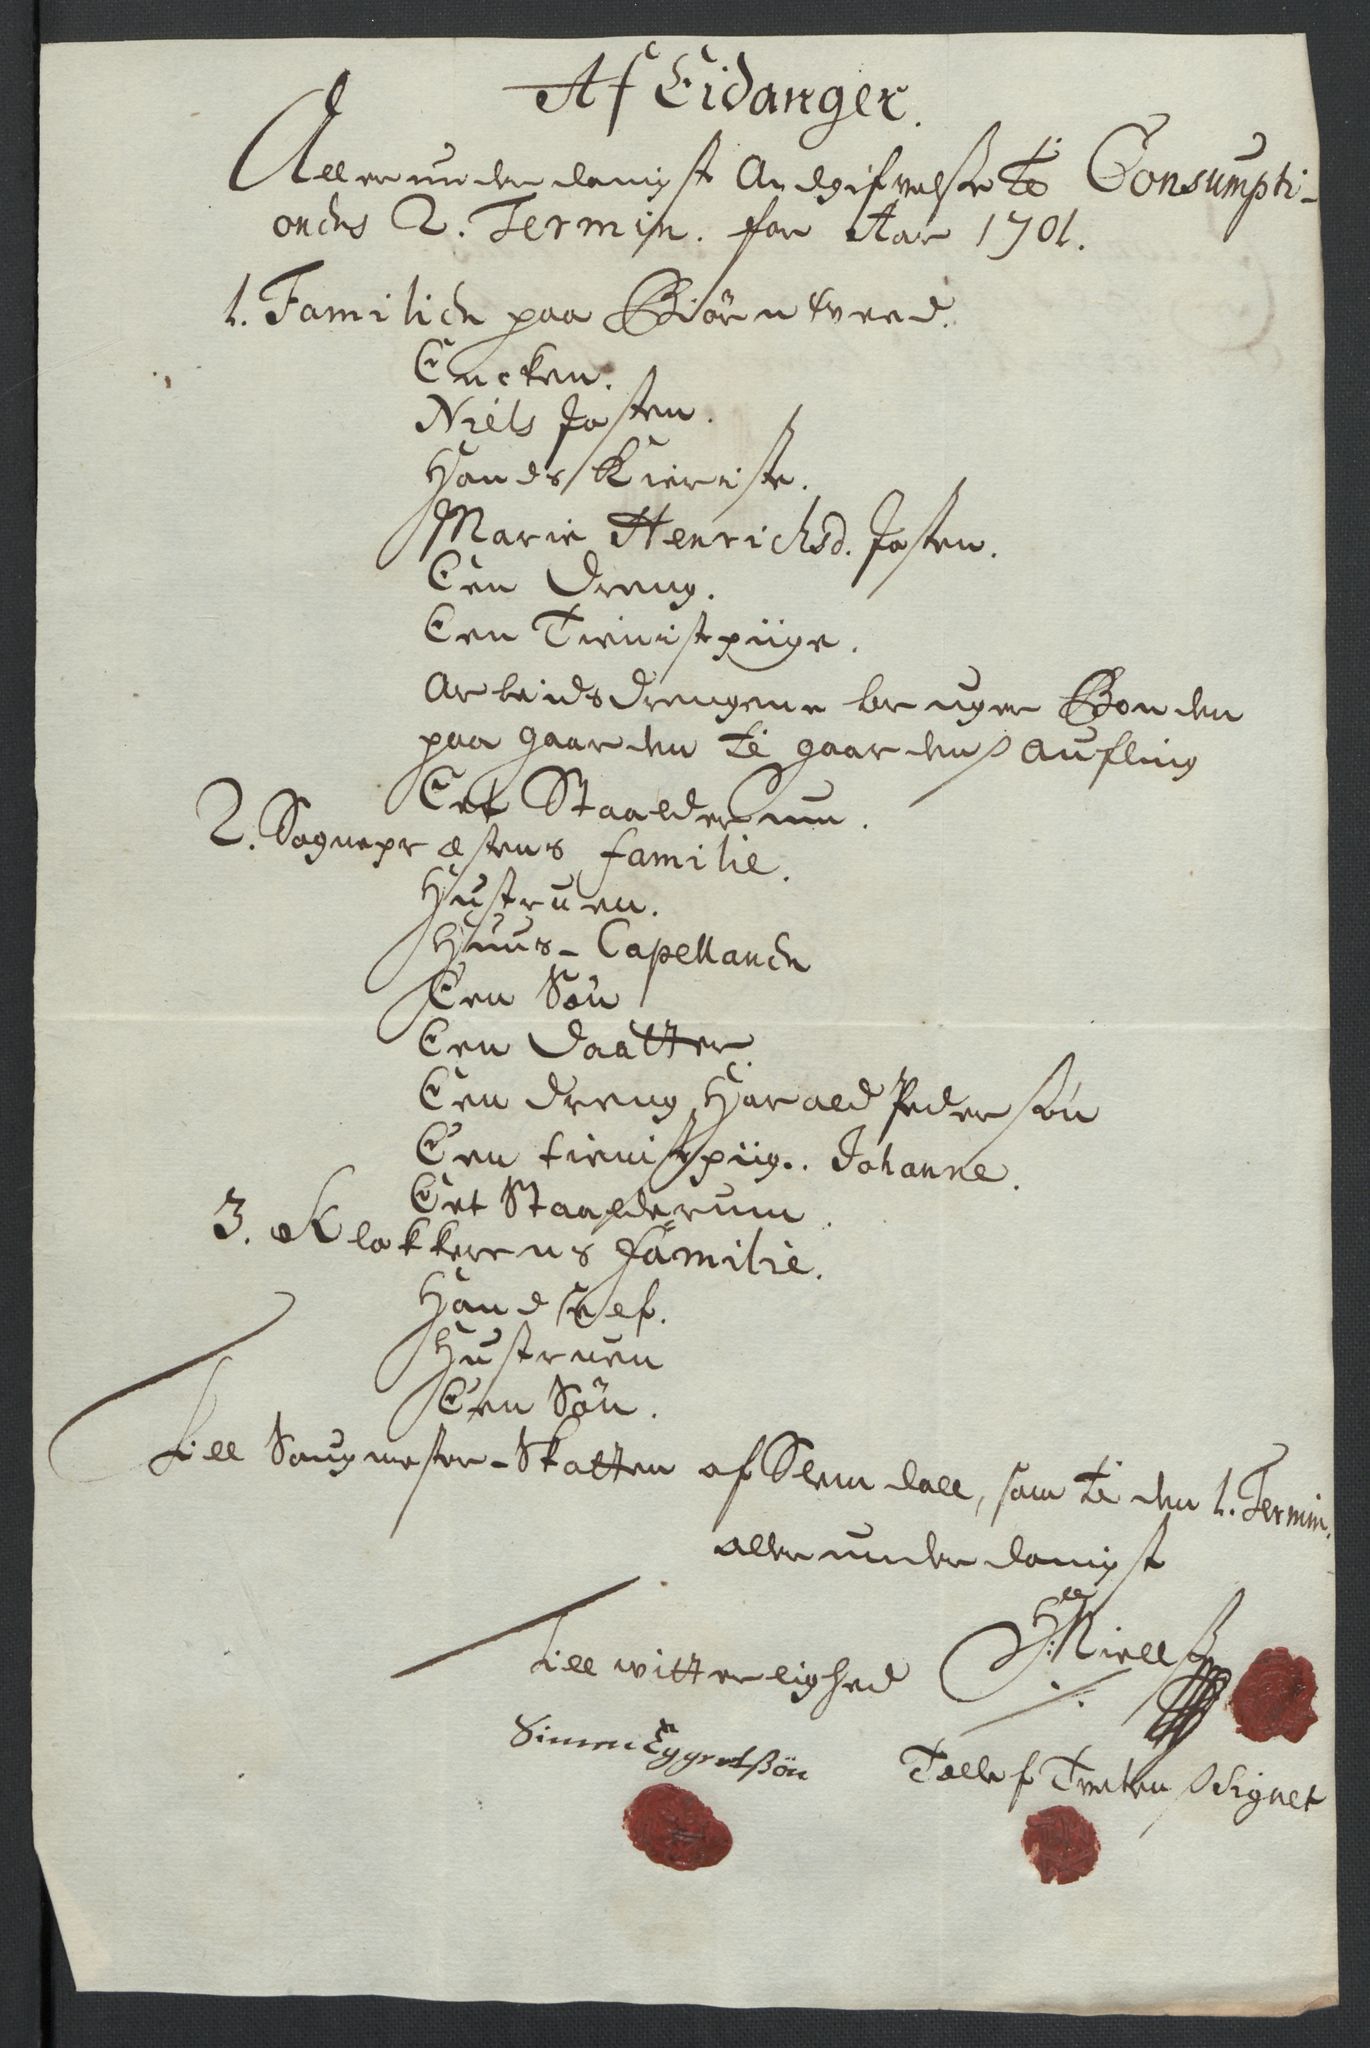 Af Eidanger.
Allerunderdanigst Andgifvelse til Consumpti-
onens 2. Termin. for Aar 1701.
1. Familien paa Biörntveed.
Encken.
Niels Josten.
Hands Kieriste.
Marie Henrichsd. Josten.
Een Dreng.
Een Tienistpiige.
Arbeidsdrengene bruger Bonden
paa gaarden til gaardens aufling
Eet Staalderum.
2. Sogneprestens familie.
Hustruen.
Huus-Capellanen
Een Søn
Een Daatter.
Een dreng Harald Pedersøn
Een tienistpiig.. Johanne.
Eet Staalderum.
3. Klokkerens familie.
Hand self.
Hustruen
Een Søn.
Till Saugmester-Skatten af Slemdall, som til den 1. Termin.
allerunderdanigst
Till vitterlighed
Simen Eggretssøn Tollef Tvetens Signet